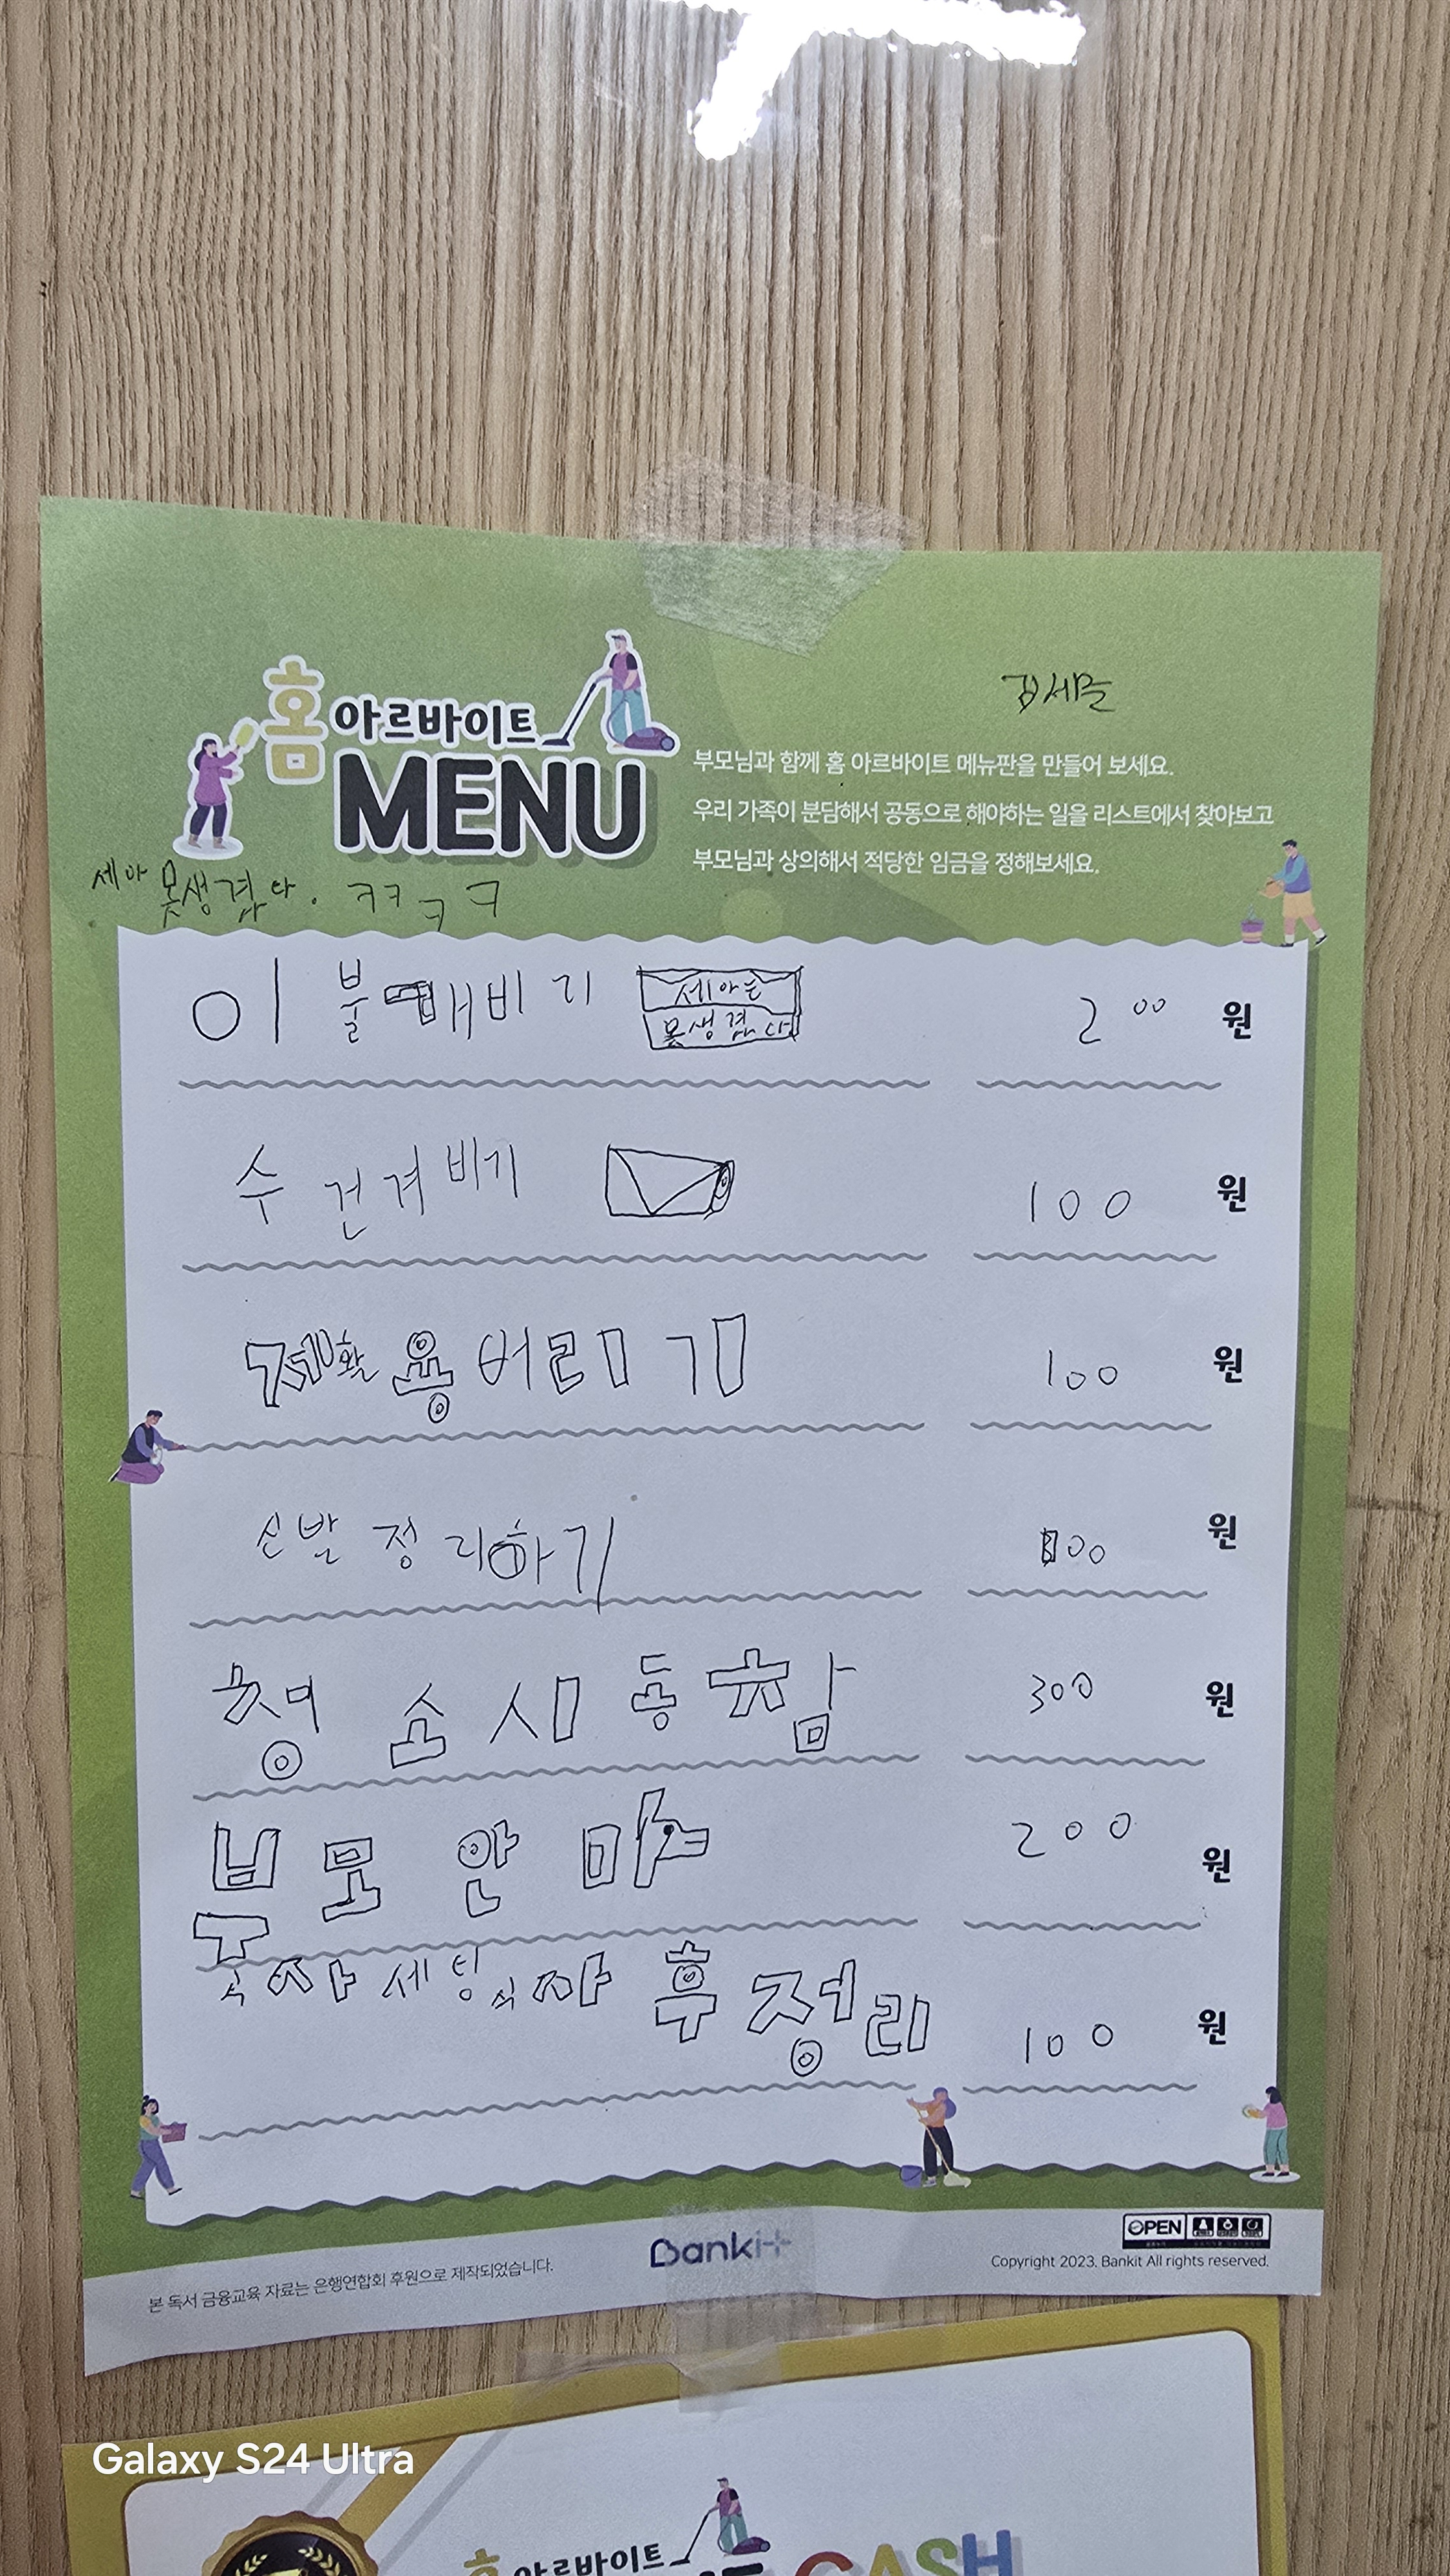 홈 아르바이트
MENU
부모님과 함께 홈 아르바이트 메뉴판을 만들어 보세요.
우리 가족이 분담해서 공동으로 해야하는 일을 리스트에서 찾아보고
부모님과 상의해서 적당한 임금을 정해보세요.
세아 못생겼다. ㅋㅋㅋㅋ
이불 비기 세아는 200 원
못생겼다
수건 겨비기 100 원
버리기 100 원
신발 정리하기 00 원
청소시 동참 300 원
부모 안마 200 원
식사 세팅 식사 후 정리 100 원
본 독서 금융교육 자료는 은행연합회 후원으로 제작되었습니다.
Bankit
OPEN
Copyright 2023. Bankit All rights reserved.
Galaxy S24 Ultra
홈 아르바이트
CASH